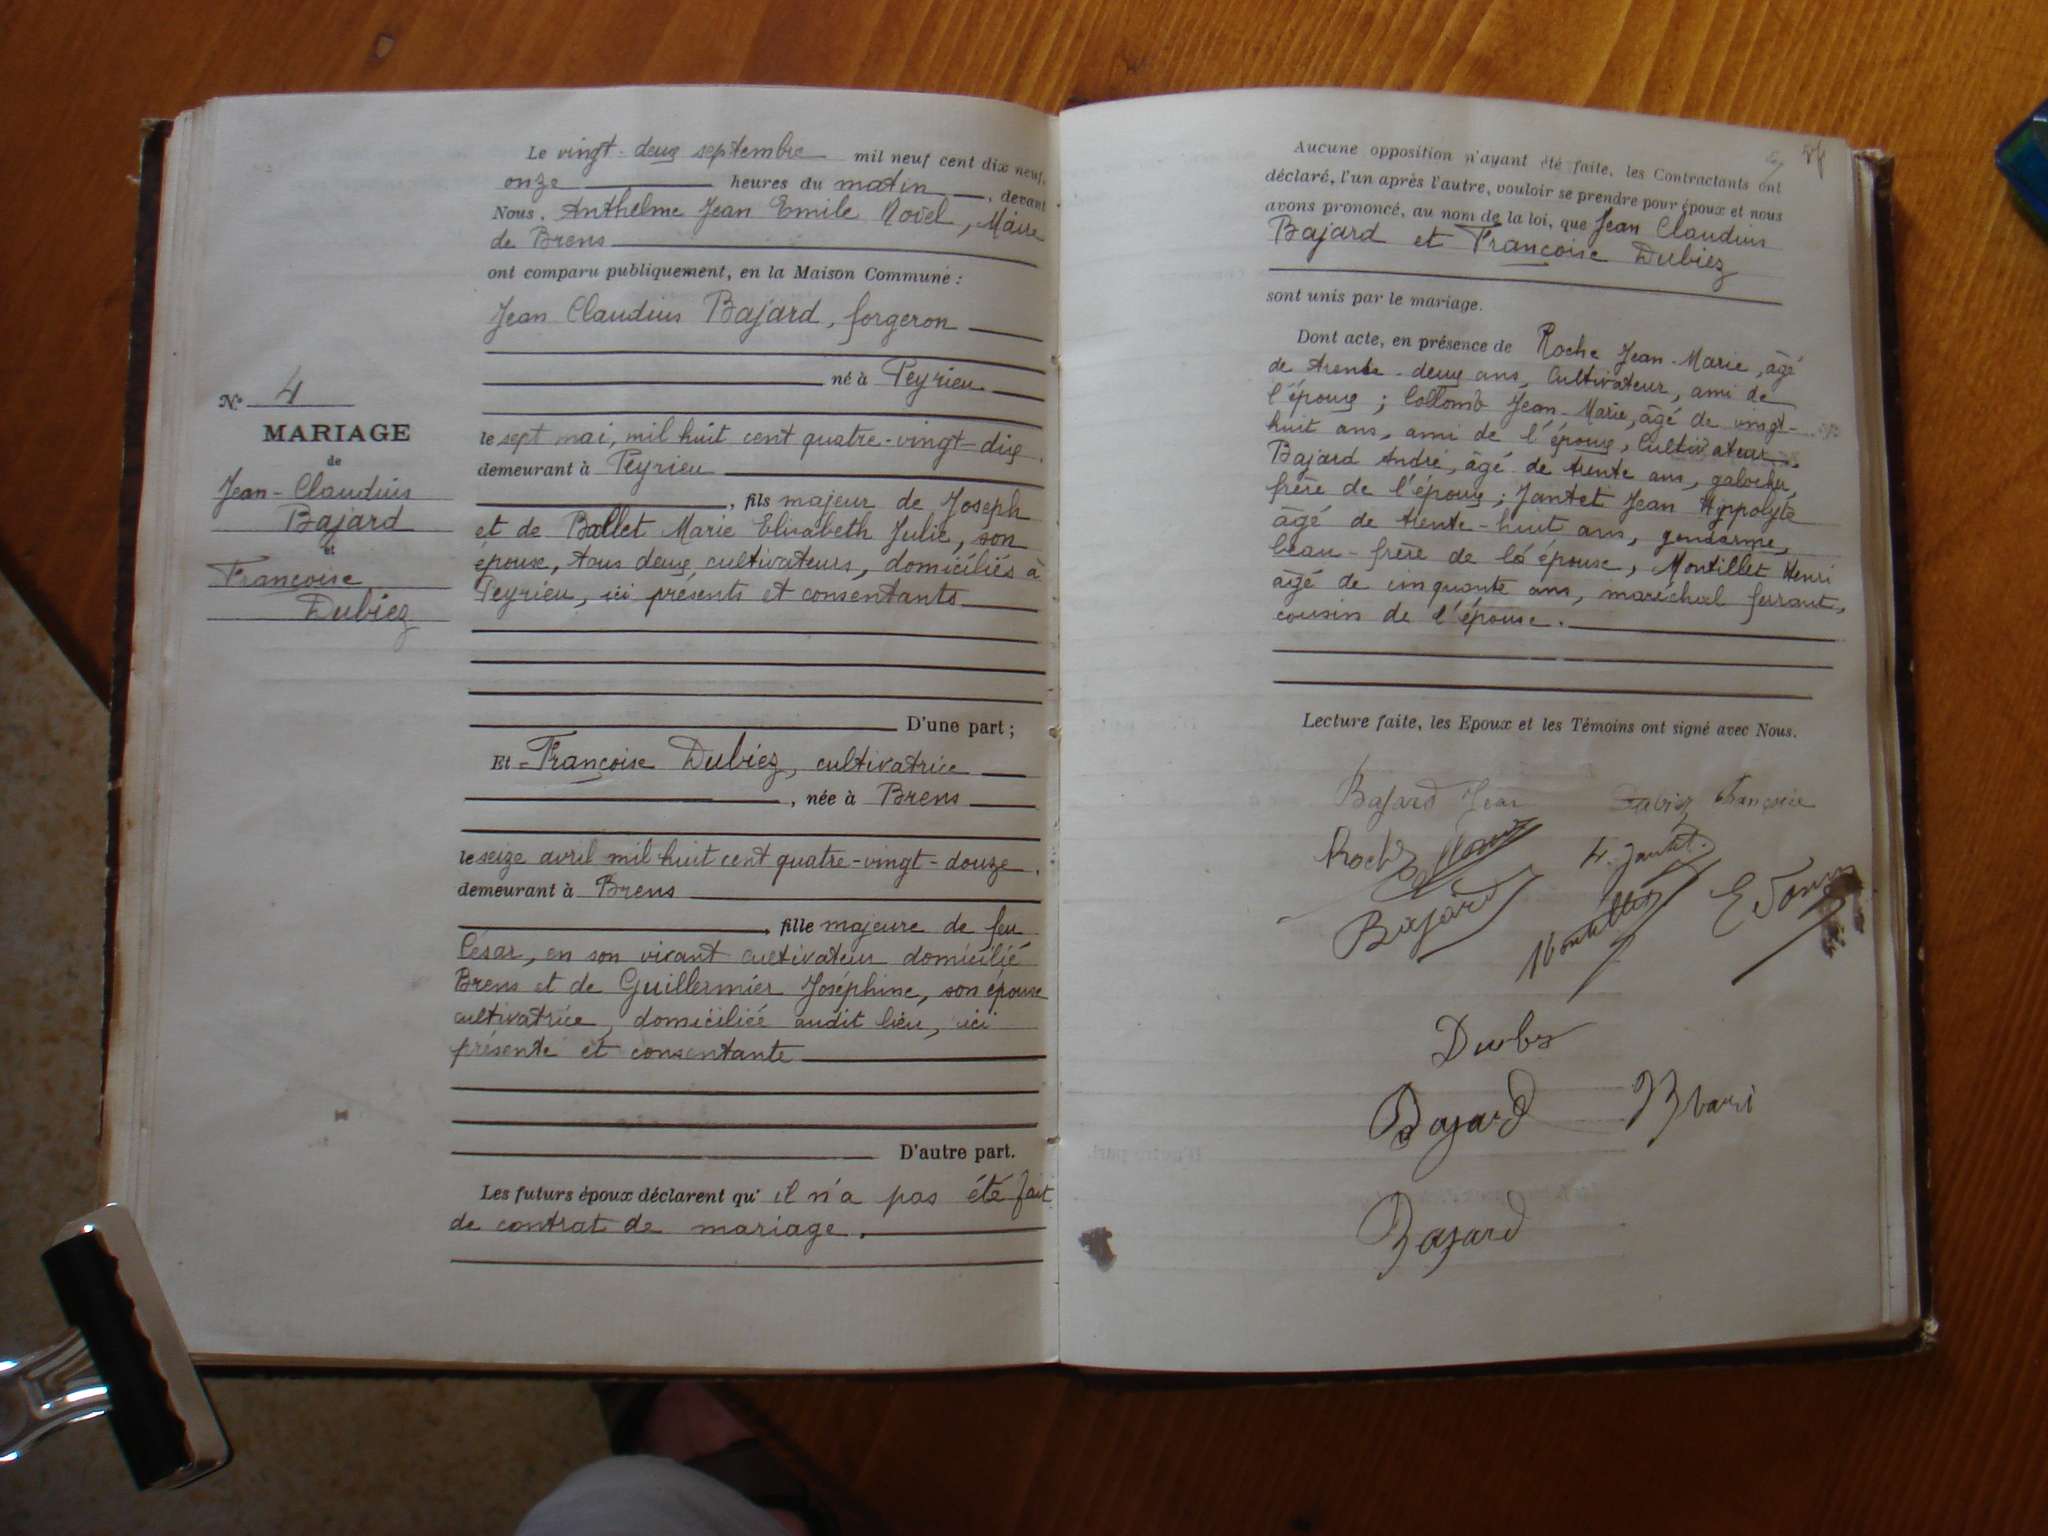 Le vingt-deux septembre mil neuf cent dix neuf,
onze heures du matin, devant
Nous, Anthelme Jean Emile Novel, Maire
de Brens
ont comparu publiquement, en la Maison Commune :
Jean Claudius Bajard, forgeron
né à Peyrieu
le sept mai, mil huit cent quatre-vingt-dix,
demeurant à Peyrieu
, fils majeur de Joseph
et de Ballet Marie Elisabeth Julie, son
épouse, tous deux cultivateurs, domiciliés à
Peyrieu, ici présents et consentants
D'une part ;
Et Françoise Dubiez, cultivatrice
, née à Brens
le seize avril mil huit cent quatre-vingt-douze,
demeurant à Brens
, fille majeure de feu
César, en son vivant cultivateur domicilié
Brens et de Guillermier Joséphine, son épouse
cultivatrice, domiciliée audit lieu, ici
présente et consentante
D'autre part.
Les futurs époux déclarent qu' il n'a pas été fait
de contrat de mariage.
N° 4
MARIAGE
de
Jean-Claudius
Bajard
et
Françoise
Dubiez
Aucune opposition n'ayant été faite, les Contractants ont
déclaré, l'un après l'autre, vouloir se prendre pour époux et nous
avons prononcé, au nom de la loi, que Jean Claudius
Bajard et Françoise Dubiez
sont unis par le mariage.
Dont acte, en présence de Roche Jean-Marie, âgé
de trente-deux ans, Cultivateur, ami de
l'époux ; Collomb Jean-Marie, âgé de vingt-
huit ans, ami de l'époux, Cultivateur,
Bajard André, âgé de trente ans, galocher,
frère de l'époux ; Jantet Jean Hippolyte
âgé de trente-huit ans, gendarme,
beau-frère de l'épouse, Montillet Henri
âgé de cinquante ans, maréchal ferrant,
cousin de l'épouse.
Lecture faite, les Epoux et les Témoins ont signé avec Nous.
Bajard Jean Dubiez Françoise
Roche Collomb H. Jantet
Bajard Montillet
Bajard
Bajard